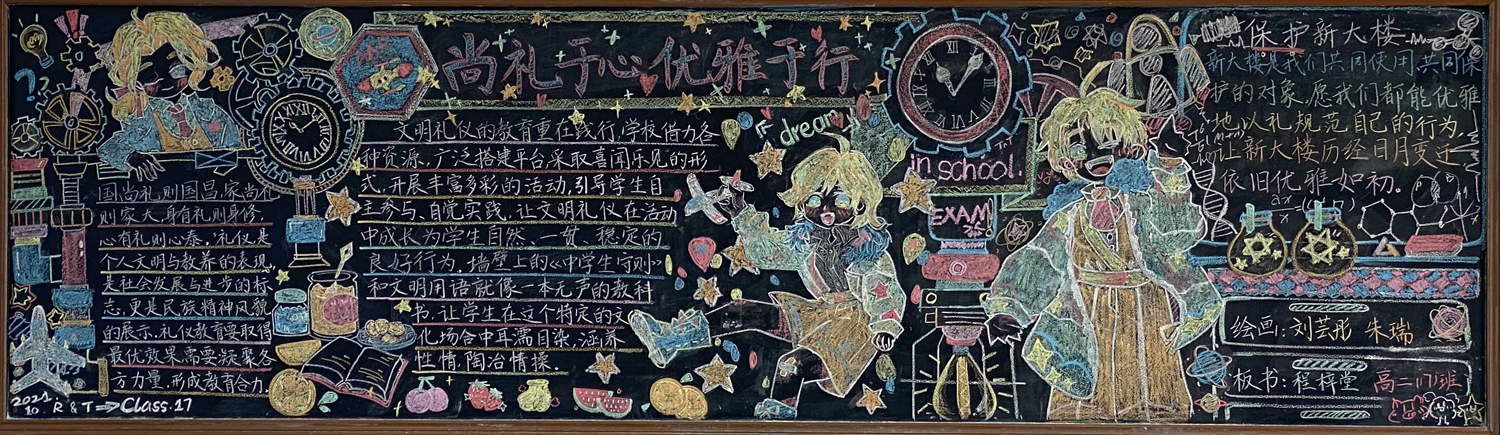 尚礼于心 优雅于行
国尚礼则国昌,家尚礼
则家大,身有礼则身修,
心有礼则心泰。礼仪是
个人文明与教养的表现,
是社会发展与进步的标
志,更是民族精神风貌
的展示,礼仪教育要取得
最优效果需要凝聚各
方力量,形成教育合力
2021
10. R & T ⇒ Class.17
文明礼仪的教育重在践行,学校借力各
种资源,广泛搭建平台采取喜闻乐见的形
式,开展丰富多彩的活动,引导学生自
主参与、自觉实践,让文明礼仪在活动
中成长为学生自然、一贯、稳定的
良好行为,墙壁上的《中学生守则》
和文明用语就像一本无声的教科
书,让学生在这个特定的文
化场合中耳濡目染,涵养
性情,陶冶情操。
dream
in school
EXAM
保护新大楼
新大楼是我们共同使用,共同保
护的对象,愿我们都能优雅
地,以礼规范自己的行为,
让新大楼历经日月变迁,
依旧优雅如初。
绘画:刘芸彤 朱瑞
板书:程梓堂 高二17班